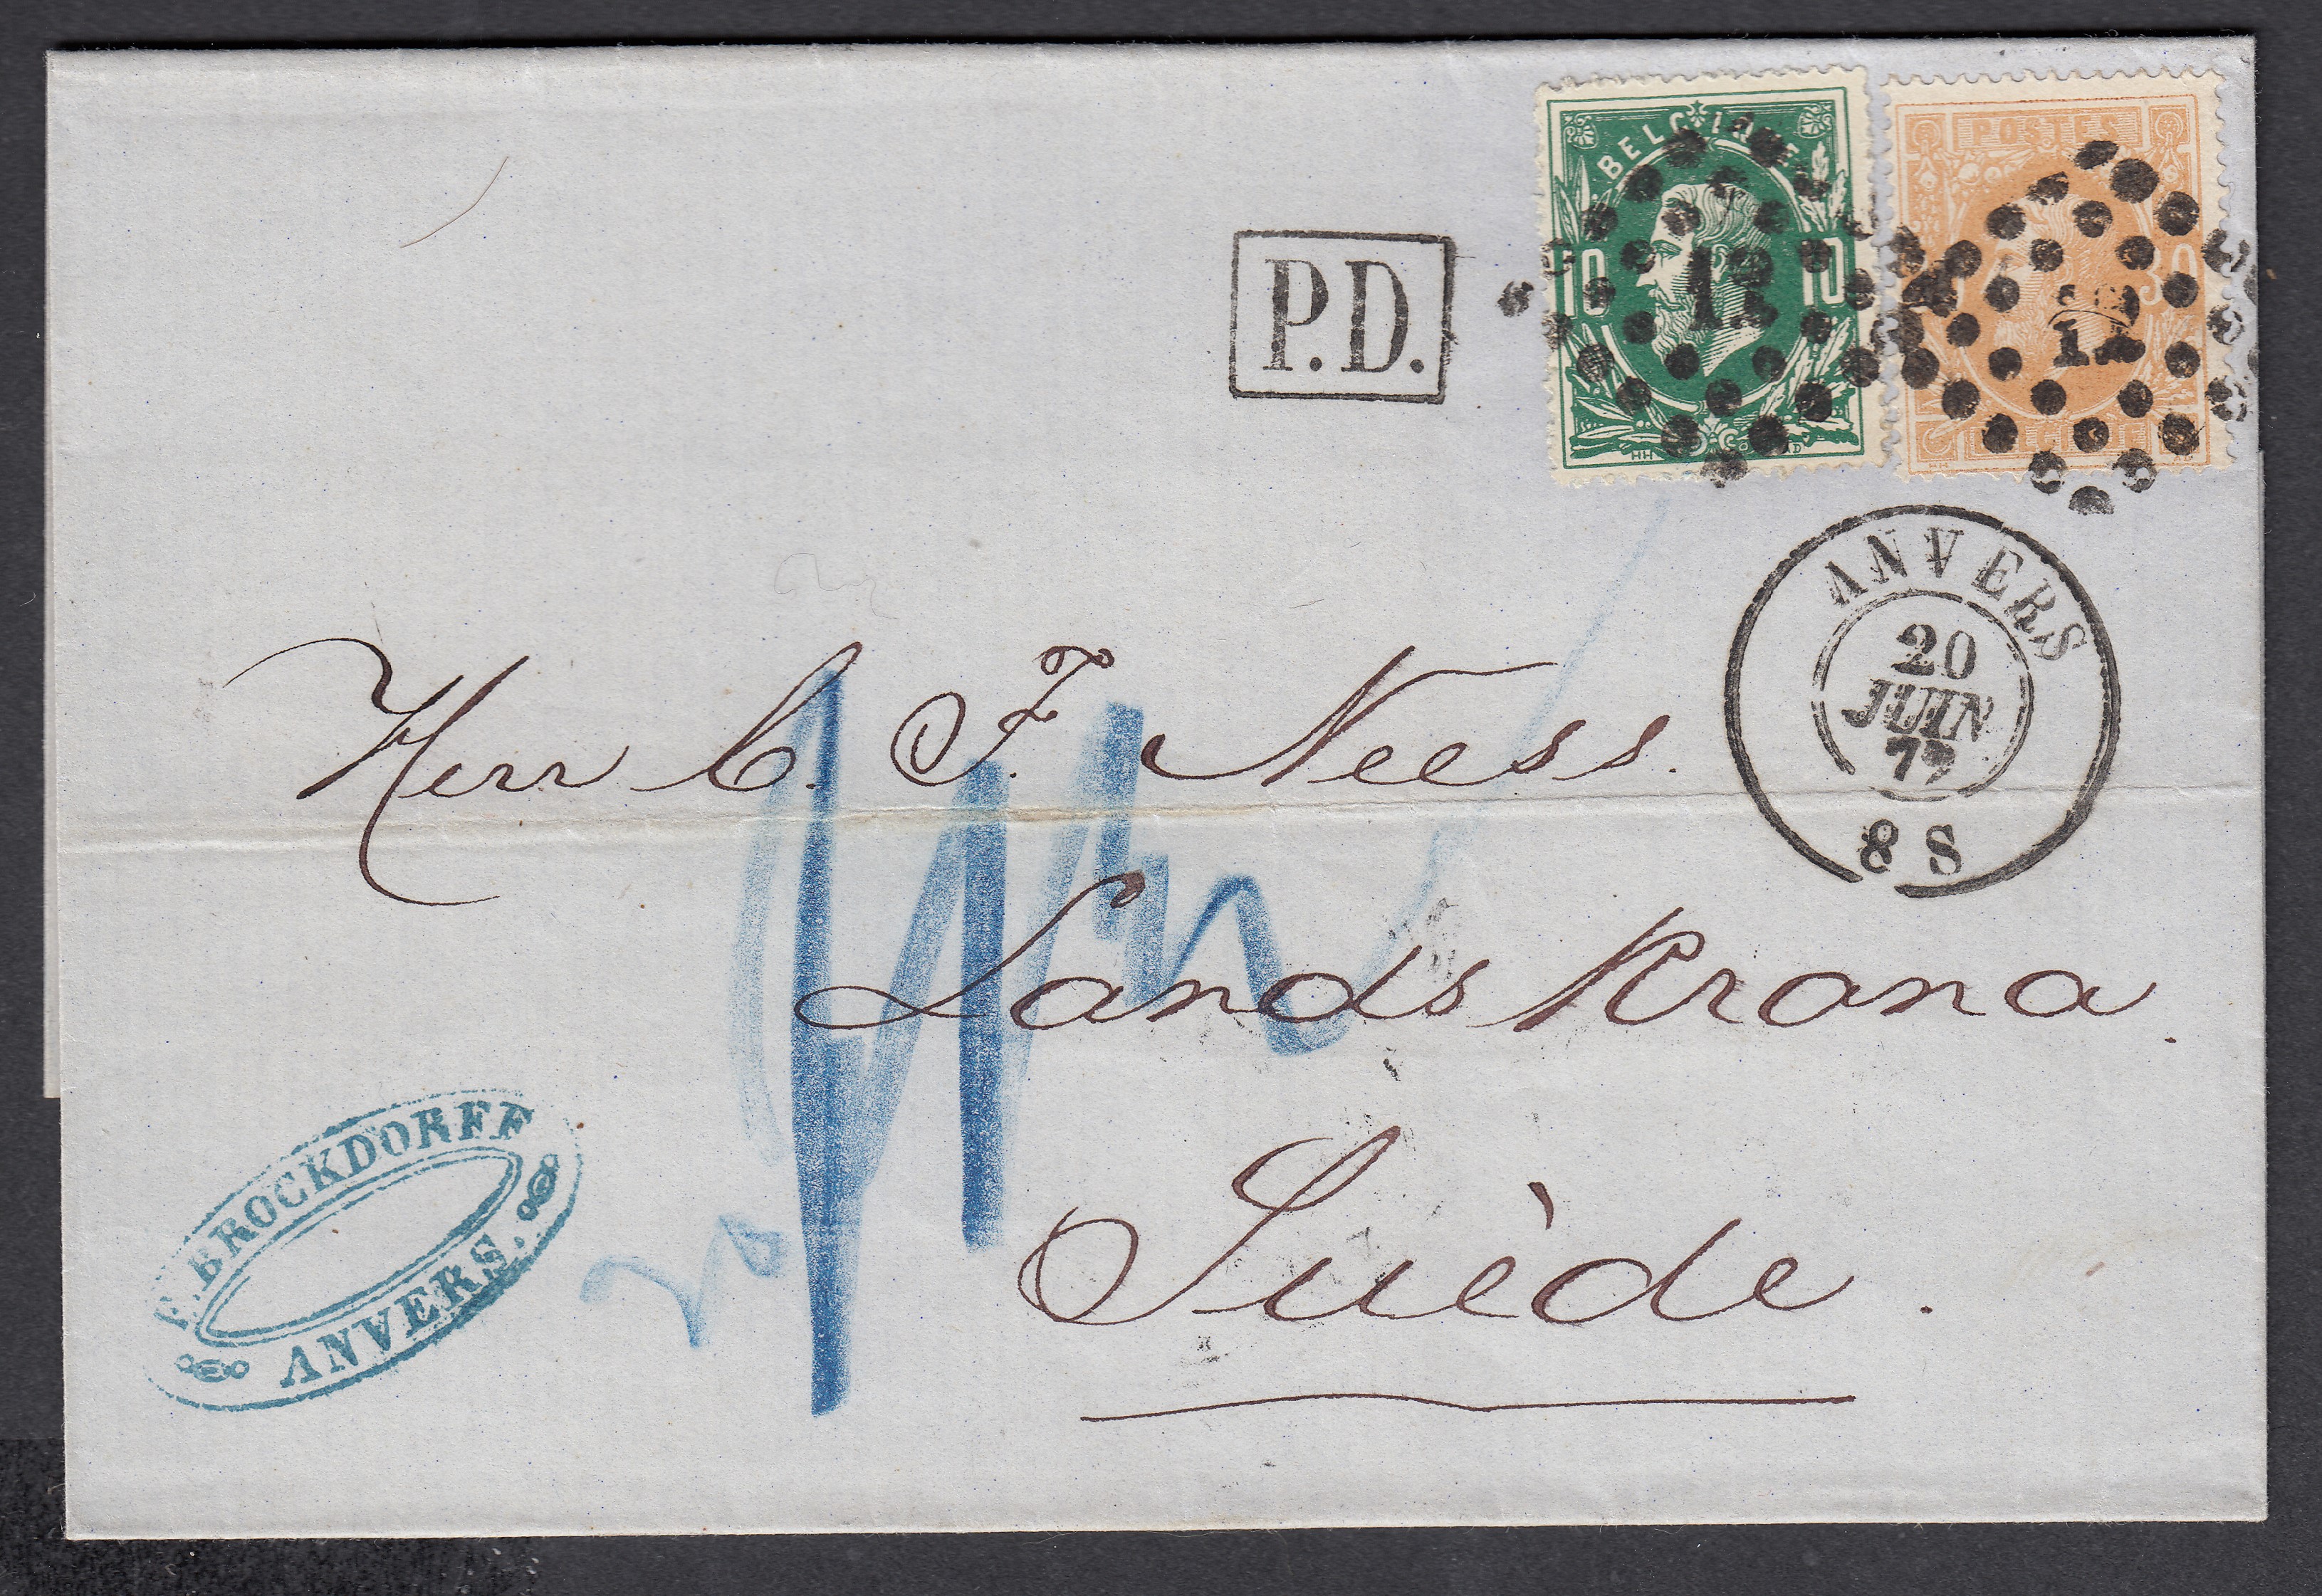 BELGIQUE
10 10
12
POSTES
30
12
P.D.
ANVERS
20
JUIN
8 S
Herr C. F. Neess.
Landskrona.
Suède.
BROCKDORFF
ANVERS.